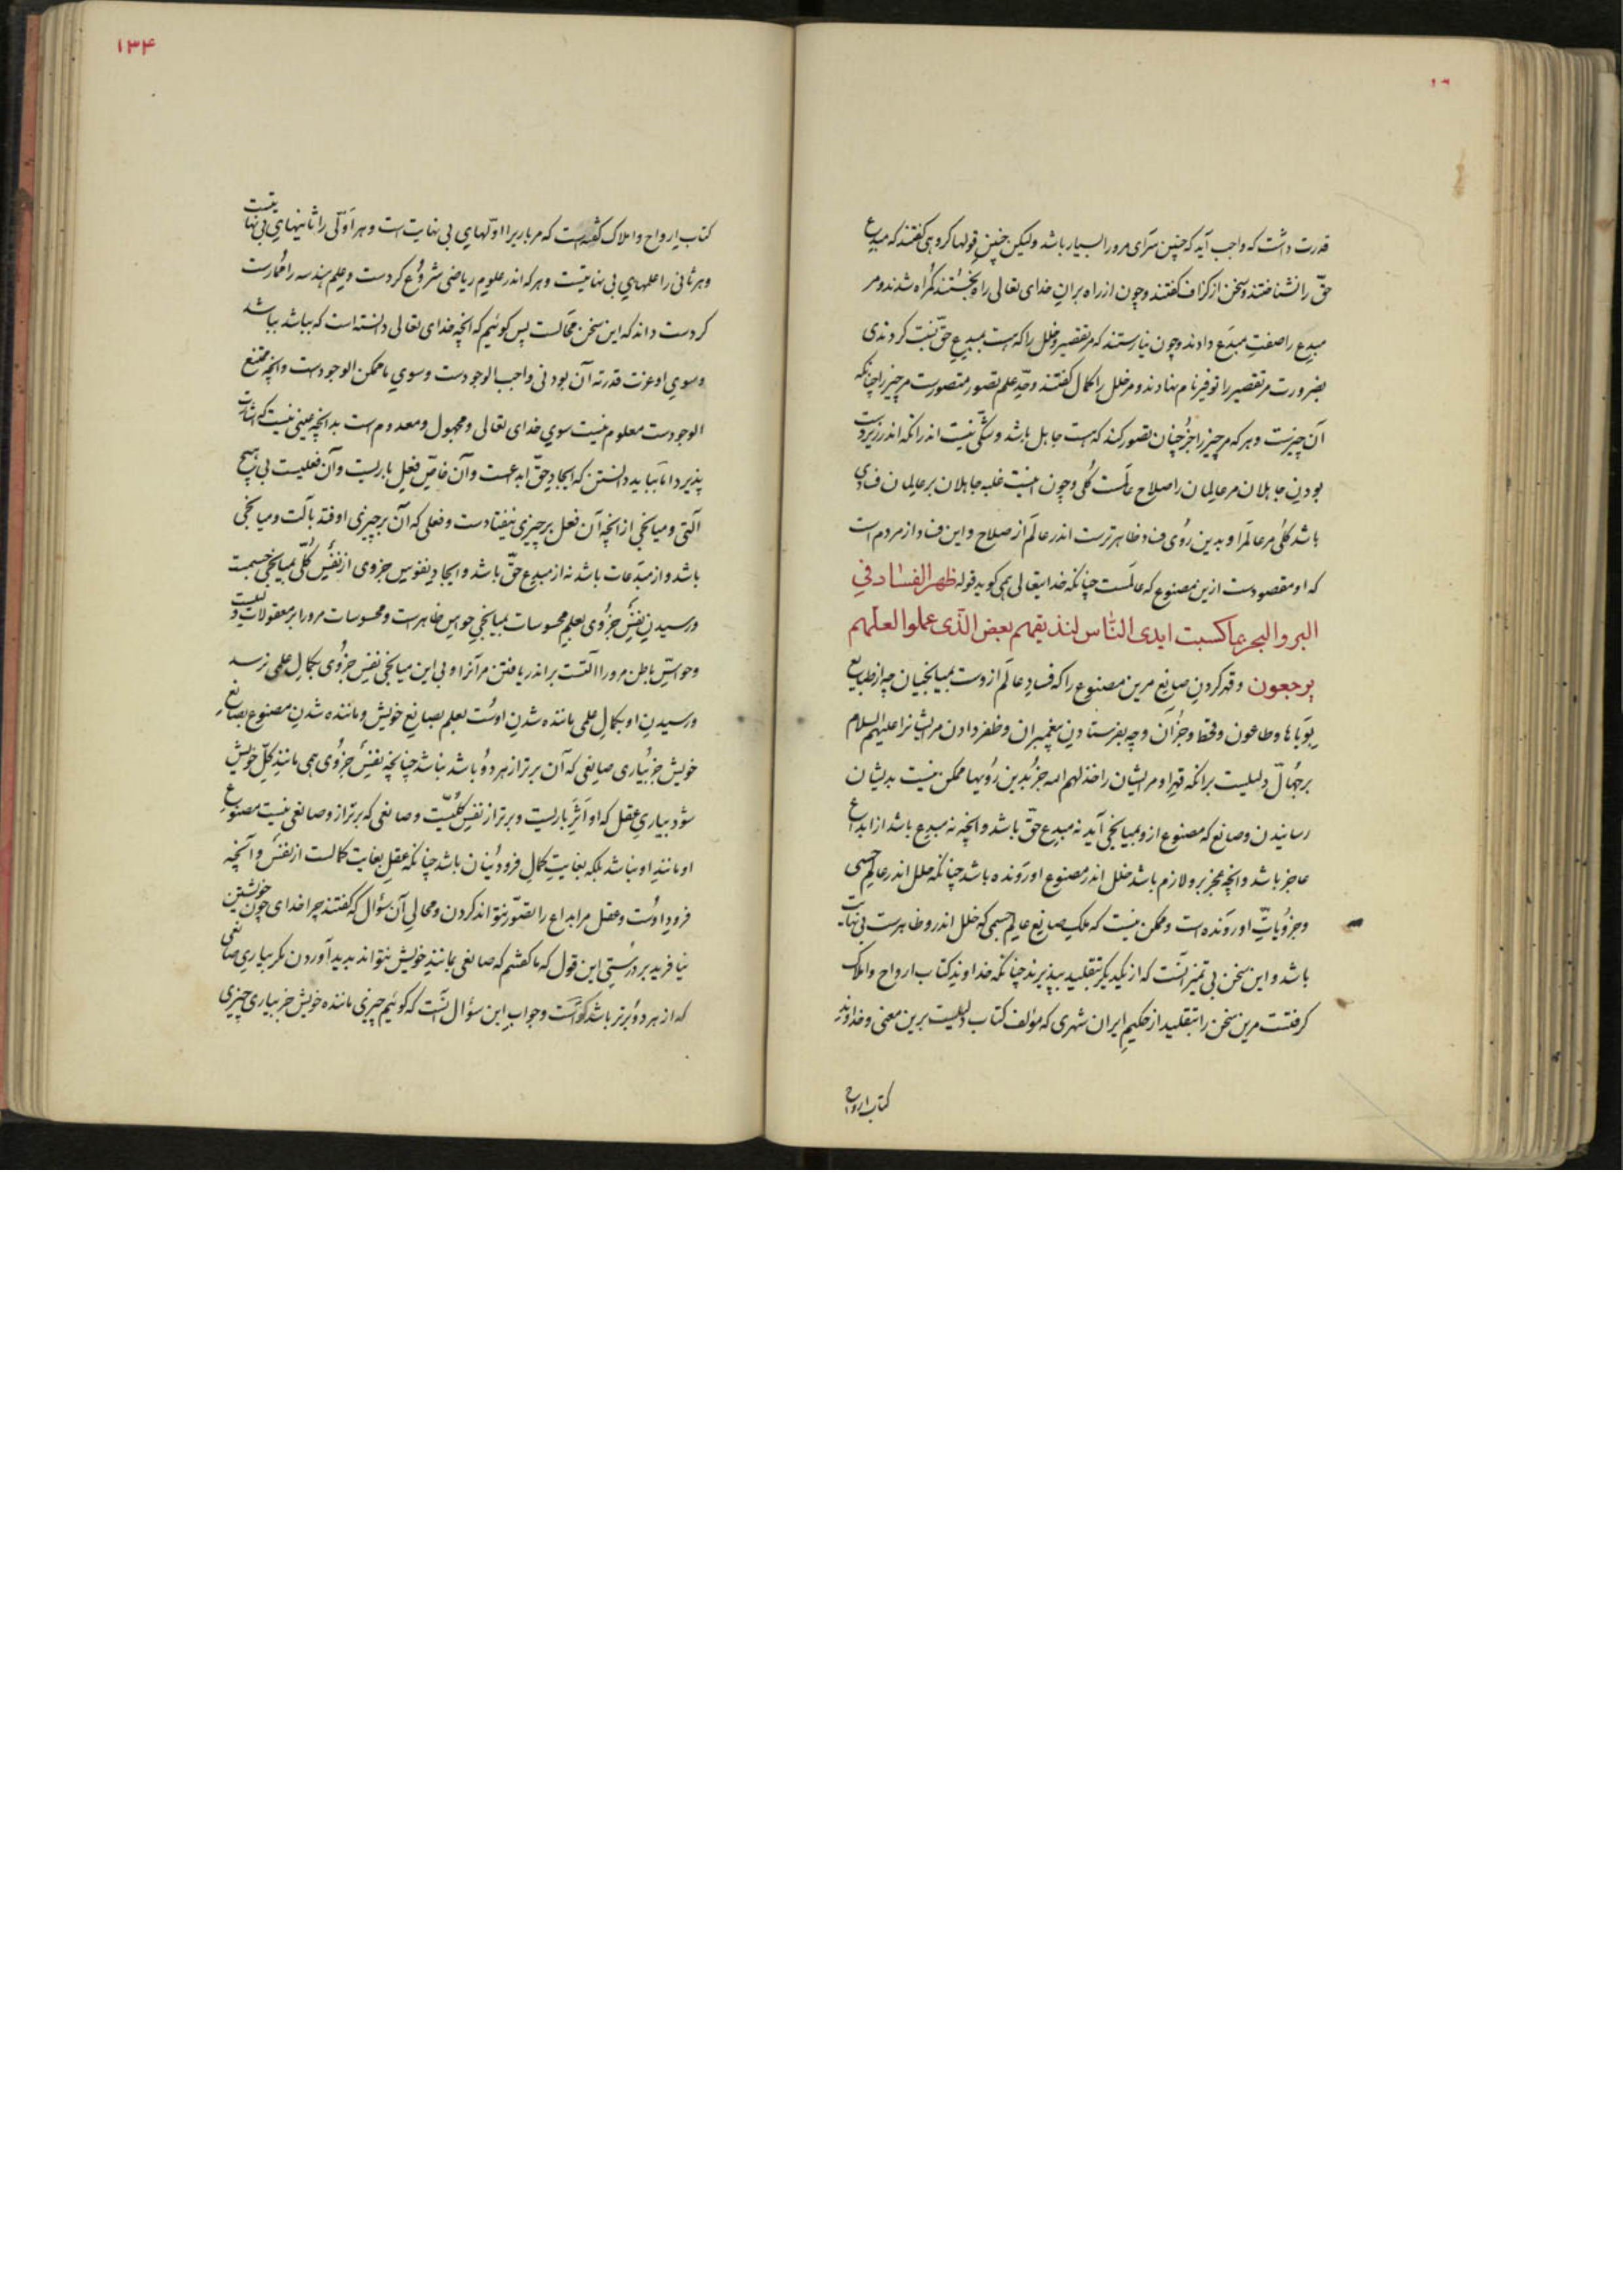 قدرت داشت که واجب آید که چنین سرای مرورا بسیار باشد ولیکن چنین قولها گروهی گفتند که مبدع
حقّ را نشناختند و سخن از گزاف گفتند و چون از راه بران خدای تعالی راه بجستند گمراه شدند و مر
مبدع را صفتِ مبدَع دادند و چون نیارستند که مر تقصیر و خلل را که هست بمبدع حقّ نسبت کردندی
بضرورت مر تقصیر را توفیر نام نهادند و مر خلل را کمال گفتند و حدّ علم تصور متصورست مر چیز را چنانکه
آن چیزست و هر که مر چیز را جز چنان تصور کند که هست جاهل باشد و شکّی نیست اندر انکه اندر زیردست
بودن جاهلان مر عالمان را صلاح عالمست کلّی و چون اینست غلبه جاهلان بر عالمان فسادی
باشد کلّی مر عالم را و بدین روی فساد ظاهرترست اندر عالم از صلاح و این فساد از مردم است
که او مقصودست ازین مصنوع که عالمست چنانکه خدایتعالی همی کوید قوله ظهر الفساد فی
البر و البحر بما کسبت ایدی النّاس لنذیقهم بعض الّذی عملوا لعلّهم
یرجعون و قهر کردن صانع مرین مصنوع را که فساد عالم ازوست بمیانجیان چه از طبایع
بوَباها و طاعون و قحط و جزآن و چه بفرستادن پیغمبران و ظفر دادن مر ایشانرا علیهم السلام
بر جهّال دلیلیست برانکه قهر او مر ایشان را خذلهم الله جز بدین رویها ممکن نیست بدیشان
رسانیدن و صانع که مصنوع ازو بمیانجی آید نه مبدع حقّ باشد و انچه نه مبدع باشد از ابداع
عاجز باشد و انچه عجز برو لازم باشد خلل اندر مصنوع او رونده باشد چنانکه خلل اندر عالم جسمی
و جزویاتِ او رونده است و ممکن نیست که ملک صانع عالم جسمی که خلل اندرو ظاهرست بی نهایت
باشد و این سخن بی تمیزانست که از یکدیکر بتقلید بپذیرند چنانکه خداوند کتاب ارواح و املاک
کرفتست مرین سخن را بتقلید از حکیم ایران شهری که مؤلف کتاب دلیلیست برین معنی و خداوند
کتاب ارواح
۱۳۴
کتاب ارواح و املاک کفته است که مر باریرا اوّلهای بی نهایت است و هر اوّلی را ثانیهای بی نهایتست
و هر ثانی را علمهای بی نهایتست و هر که اندر علوم ریاضی شروع کردست و علم هندسه را ممارست
کردست داند که این سخن محالست پس کوئیم که انچه خدای تعالی دانسته است که بباشد بباشد
و سوی او عزت قدرته آن بودنی واجب الوجودست و سوی ما ممکن الوجودست و انچه ممتنع
الوجودست معلوم نیست سوی خدای تعالی و مجهول و معدوم است بدانچه عینی نیست که اشارت
پذیرد اما بباید دانستن که ایجاد حقّ ابداعست و آن خاصّ فعل باریست و آن فعلیست بی هیچ
آلتی و میانجی از انچه آن فعل بر چیزی نیفتادست و فعلی که آن بر چیزی اوفتد بآلت و میانجی
باشد و از مبدَعات باشد نه از مبدع حقّ باشد و ایجاد نفوس جزوی از نفس کلّی بمیانجی جسمست
و رسیدن نفس جزوی بعلم محسوسات بمیانجی حواس ظاهرست و محسوسات مرورا بر معقولات دلیلست
و حواسّ باطن مرورا آلتست بر اندر یافتن مر آنرا و بی این میانجی نفس جزوی بکمال علمی نرسد
و رسیدن او بکمال علمی ماننده شدن اوست بعلم بصانع خویش و ماننده شدن مصنوع بصانع
خویش جز بیاری صانعی که آن برتر از هر دو باشد نباشد چنانچه نفس جزوی همی مانند کلّ خویش
شود بیاری عقل که او اثر باریست و برتر از نفس کلّیست و صانعی که برتر ازو صانعی نیست مصنوع
او مانند او نباشد بلکه بغایتِ کمال فرودینان باشد چنانکه عقل بغایت کمالست از نفس و انچه
فرود اوست و عقل مر ابداع را تصوّر نتواند کردن و محالی آن سؤال که گفتند چرا خدای چون خویشتن
نیافرید بر درستی این قول که ما گفتیم که صانعی مانند خویش نتواند پدید آوردن مکر بیاری صانعی
که از هر دو برتر باشد گواست و جواب این سؤال آنست که کوئیم چیزی ماننده خویش جز بیاری چیزی